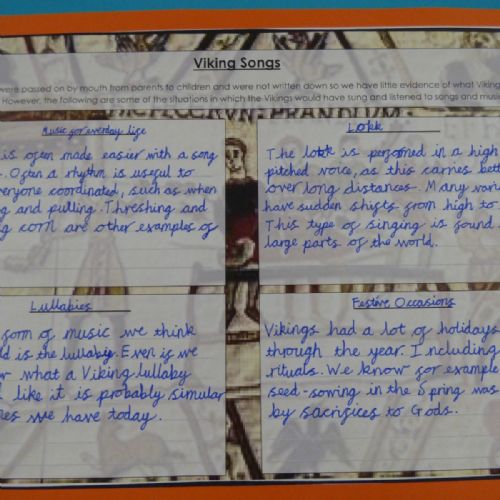 Viking Songs
were passed on by mouth from parents to children and were not written down so we have little evidence of what Viking
However, the following are some of the situations in which the Vikings would have sung and listened to songs and music
Music for everyday life
is often made easier with a song
. Often a rhythm is useful to
eryone coordinated, such as when
g and pulling. Threshing and
g corn are other examples of
Lokk
The lokk is performed in a high
pitched voice, as this carries bett
over long distances. Many
have sudden shifts from high to
This type of singing is found
large parts of the world.
Lullabies
form of music we think
ld is the lullabiy. Even if we
w what a Viking lullaby
d like it is probably simular
nes we have today.
Festive Occasions
Vikings had a lot of holidays
through the year. Including
rituals. We know for example
seed-sowing in the Spring was
by sacrifices to Gods.